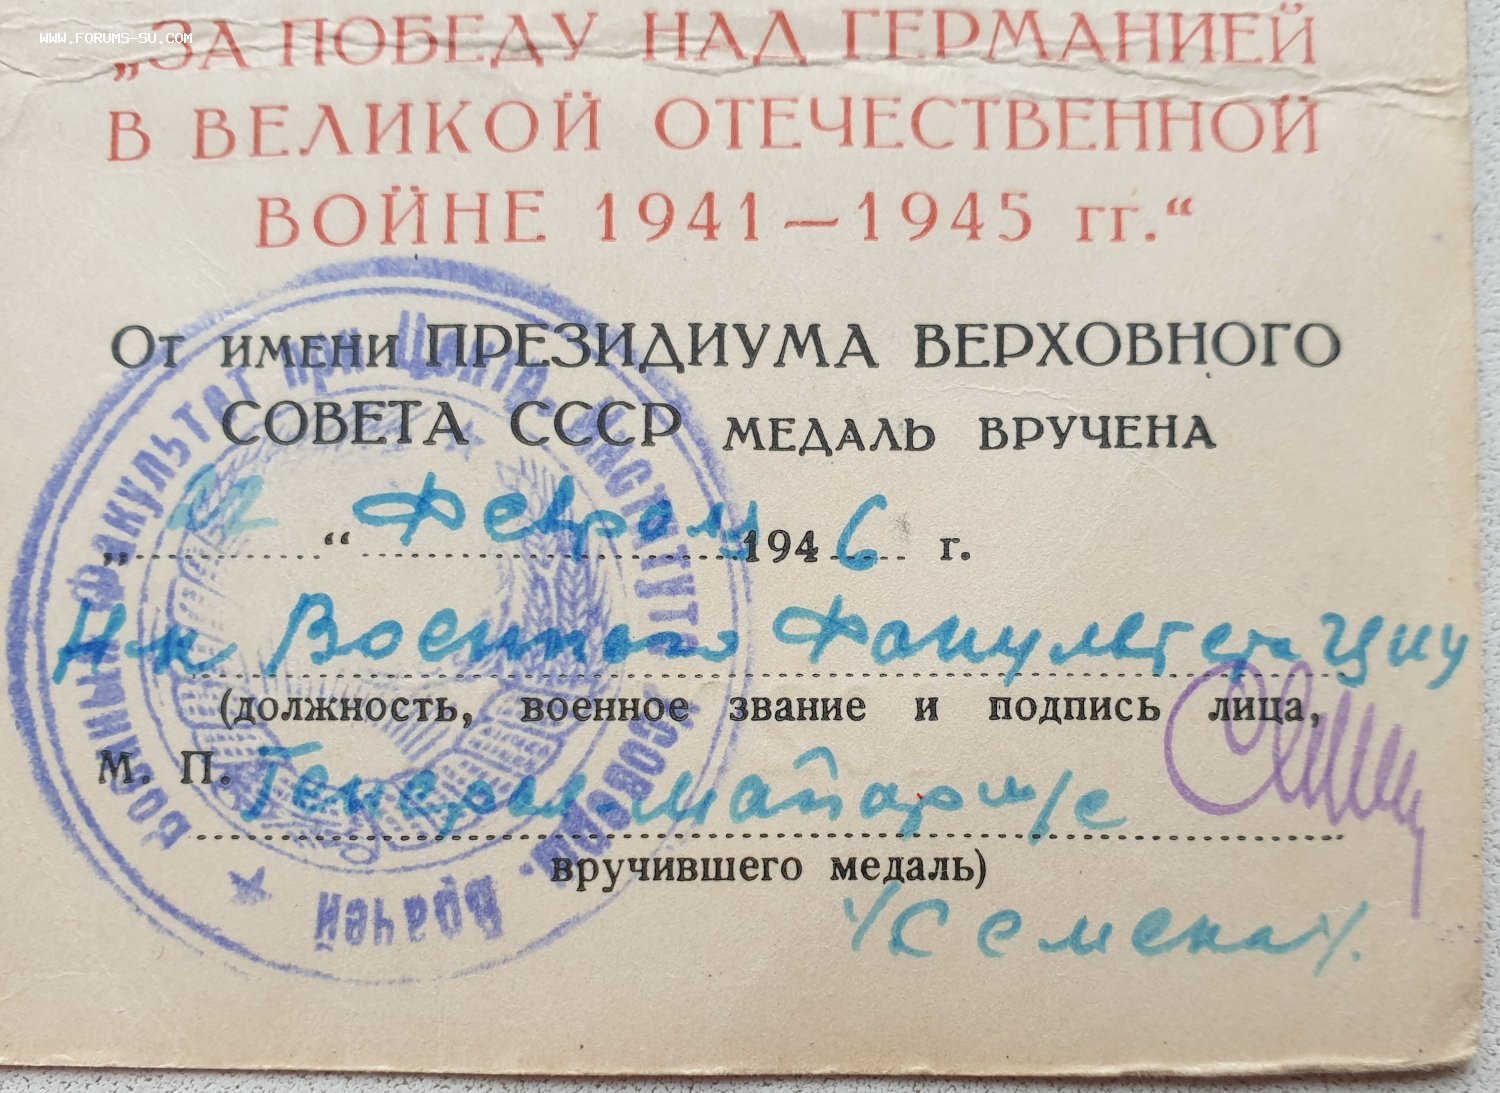 WWW.FORUMS-SU.COM
„ЗА ПОБЕДУ НАД ГЕРМАНИЕЙ
В ВЕЛИКОЙ ОТЕЧЕСТВЕННОЙ
ВОЙНЕ 1941—1945 гг.“
От имени ПРЕЗИДИУМА ВЕРХОВНОГО
СОВЕТА СССР МЕДАЛЬ ВРУЧЕНА
„22“ Февраля 1946 г.
Нк Военного Факультета ЦИУ
(должность, военное звание и подпись лица,
М. П. Генерал-майор м/с
вручившего медаль)
Военный факультет при Центр. Институте Усоверш. Врачей